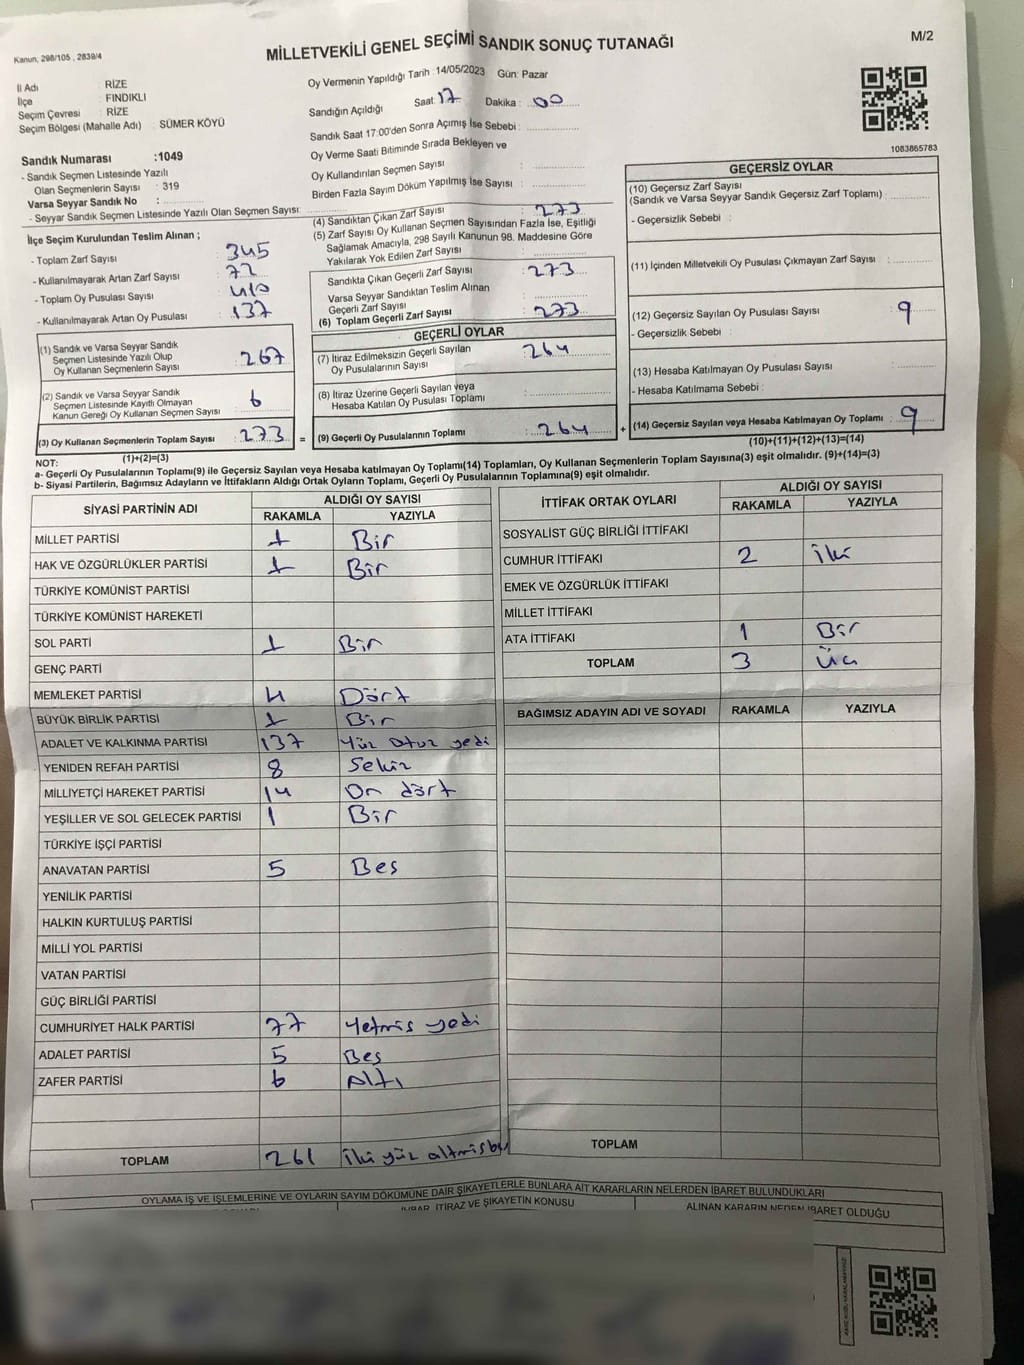 Kanun, 298/105 , 2839/4
MİLLETVEKİLİ GENEL SEÇİMİ SANDIK SONUÇ TUTANAĞI
M/2
İl Adı : RİZE
İlçe : FINDIKLI
Seçim Çevresi : RİZE
Seçim Bölgesi (Mahalle Adı) SÜMER KÖYÜ
Sandık Numarası :1049
- Sandık Seçmen Listesinde Yazılı
Olan Seçmenlerin Sayısı : 319
Varsa Seyyar Sandık No :
- Seyyar Sandık Seçmen Listesinde Yazılı Olan Seçmen Sayısı:
Oy Vermenin Yapıldığı Tarih : 14/05/2023 Gün: Pazar
Sandığın Açıldığı Saat: 17 Dakika : 00
Sandık Saat 17:00'den Sonra Açımış İse Sebebi :
Oy Verme Saati Bitiminde Sırada Bekleyen ve
Oy Kullandırılan Seçmen Sayısı :
Birden Fazla Sayım Döküm Yapılmış İse Sayısı :
1083865783
İlçe Seçim Kurulundan Teslim Alınan ;
- Toplam Zarf Sayısı : 345
- Kullanılmayarak Artan Zarf Sayısı : 72
- Toplam Oy Pusulası Sayısı : 410
- Kullanılmayarak Artan Oy Pusulası : 137
(1) Sandık ve Varsa Seyyar Sandık
Seçmen Listesinde Yazılı Olup
Oy Kullanan Seçmenlerin Sayısı : 267
(2) Sandık ve Varsa Seyyar Sandık
Seçmen Listesinde Kayıtlı Olmayan
Kanun Gereği Oy Kullanan Seçmen Sayısı : 6
(3) Oy Kullanan Seçmenlerin Toplam Sayısı : 273 =
(1)+(2)=(3)
(4) Sandıktan Çıkan Zarf Sayısı : 273
(5) Zarf Sayısı Oy Kullanan Seçmen Sayısından Fazla İse, Eşitliği
Sağlamak Amacıyla, 298 Sayılı Kanunun 98. Maddesine Göre
Yakılarak Yok Edilen Zarf Sayısı :
Sandıkta Çıkan Geçerli Zarf Sayısı : 273
Varsa Seyyar Sandıktan Teslim Alınan
Geçerli Zarf Sayısı :
(6) Toplam Geçerli Zarf Sayısı : 273
GEÇERLİ OYLAR
(7) İtiraz Edilmeksizin Geçerli Sayılan
Oy Pusulalarının Sayısı : 264
(8) İtiraz Üzerine Geçerli Sayılan veya
Hesaba Katılan Oy Pusulası Toplamı :
(9) Geçerli Oy Pusulalarının Toplamı : 264 +
GEÇERSİZ OYLAR
(10) Geçersiz Zarf Sayısı
(Sandık ve Varsa Seyyar Sandık Geçersiz Zarf Toplamı) :
- Geçersizlik Sebebi :
(11) İçinden Milletvekili Oy Pusulası Çıkmayan Zarf Sayısı :
(12) Geçersiz Sayılan Oy Pusulası Sayısı : 9
- Geçersizlik Sebebi :
(13) Hesaba Katılmayan Oy Pusulası Sayısı :
- Hesaba Katılmama Sebebi :
(14) Geçersiz Sayılan veya Hesaba Katılmayan Oy Toplamı : 9
(10)+(11)+(12)+(13)=(14)
NOT:
a- Geçerli Oy Pusulalarının Toplamı(9) ile Geçersiz Sayılan veya Hesaba katılmayan Oy Toplamı(14) Toplamları, Oy Kullanan Seçmenlerin Toplam Sayısına(3) eşit olmalıdır. (9)+(14)=(3)
b- Siyasi Partilerin, Bağımsız Adayların ve İttifakların Aldığı Ortak Oyların Toplamı, Geçerli Oy Pusulalarının Toplamına(9) eşit olmalıdır.
SİYASİ PARTİNİN ADI
ALDIĞI OY SAYISI
RAKAMLA YAZIYLA
MİLLET PARTİSİ 1 Bir
HAK VE ÖZGÜRLÜKLER PARTİSİ 1 Bir
TÜRKİYE KOMÜNİST PARTİSİ
TÜRKİYE KOMÜNİST HAREKETİ
SOL PARTİ 1 Bir
GENÇ PARTİ
MEMLEKET PARTİSİ 4 Dört
BÜYÜK BİRLİK PARTİSİ 1 Bir
ADALET VE KALKINMA PARTİSİ 137 Yüz otuz yedi
YENİDEN REFAH PARTİSİ 8 Sekiz
MİLLİYETÇİ HAREKET PARTİSİ 14 On dört
YEŞİLLER VE SOL GELECEK PARTİSİ 1 Bir
TÜRKİYE İŞÇİ PARTİSİ
ANAVATAN PARTİSİ 5 Bes
YENİLİK PARTİSİ
HALKIN KURTULUŞ PARTİSİ
MİLLİ YOL PARTİSİ
VATAN PARTİSİ
GÜÇ BİRLİĞİ PARTİSİ
CUMHURİYET HALK PARTİSİ 77 Yetmis yedi
ADALET PARTİSİ 5 Beş
ZAFER PARTİSİ 6 Altı
TOPLAM 261 İki yüz altmisbir
İTTİFAK ORTAK OYLARI
ALDIĞI OY SAYISI
RAKAMLA YAZIYLA
SOSYALİST GÜÇ BİRLİĞİ İTTİFAKI
CUMHUR İTTİFAKI 2 İki
EMEK VE ÖZGÜRLÜK İTTİFAKI
MİLLET İTTİFAKI
ATA İTTİFAKI 1 Bir
TOPLAM 3 Üç
BAĞIMSIZ ADAYIN ADI VE SOYADI RAKAMLA YAZIYLA
TOPLAM
OYLAMA İŞ VE İŞLEMLERİNE VE OYLARIN SAYIM DÖKÜMÜNE DAİR ŞİKAYETLERLE BUNLARA AİT KARARLARIN NELERDEN İBARET BULUNDUKLARI
İTİRAZ VE ŞİKAYETİN KONUSU
ALINAN KARARIN NEDEN İBARET OLDUĞU